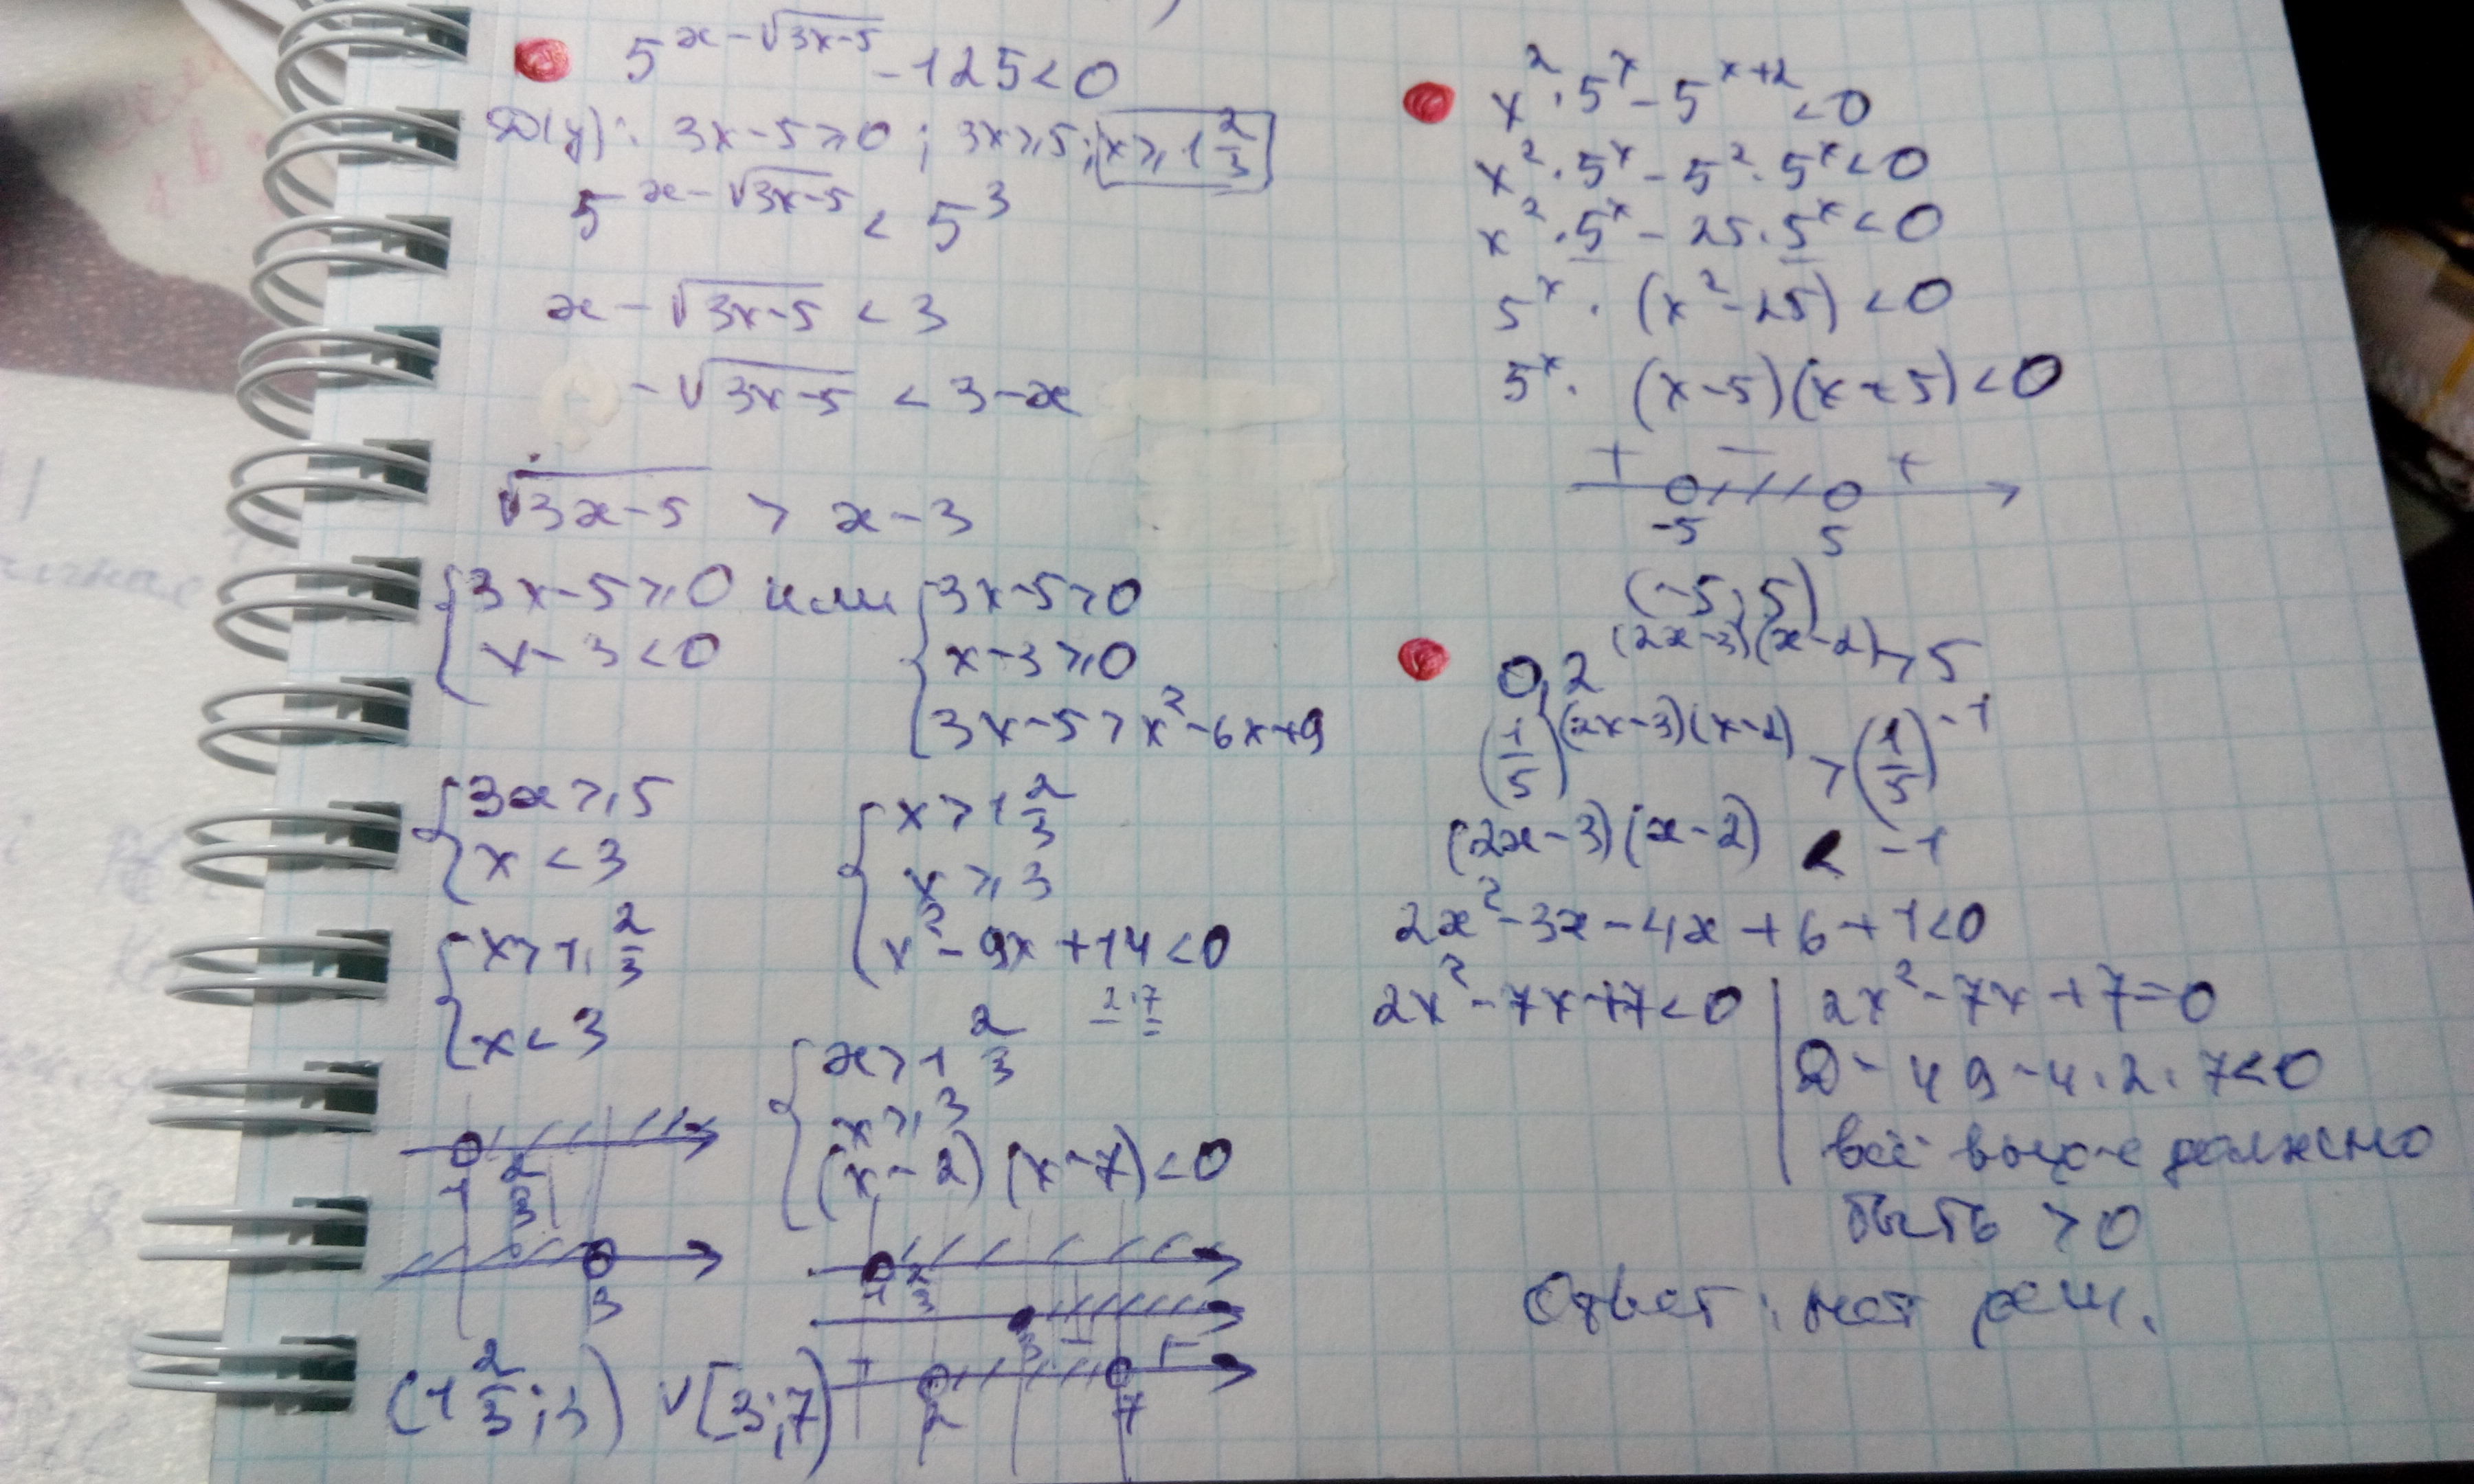 5^(x-√(3x-5)) - 125 < 0
D(y): 3x-5 ≥ 0; 3x ≥ 5; x ≥ 1 2/3
5^(x-√(3x-5)) < 5^3
x - √(3x-5) < 3
-√(3x-5) < 3-x
√(3x-5) > x-3
{3x-5 ≥ 0 или {3x-5 > 0
x-3 < 0 x-3 ≥ 0
3x-5 > x²-6x+9
{3x ≥ 5
x < 3
{x > 1 2/3
x ≥ 3
x²-9x+14 < 0
2; 7
{x > 1 2/3
x < 3
{x > 1 2/3
x ≥ 3
(x-2)(x-7) < 0
1 2/3
3
1 2/3
3 - +
+ 2 7
(1 2/3; 3) ∨ [3; 7)
x²·5^x - 5^(x+2) < 0
x²·5^x - 5²·5^x < 0
x²·5^x - 25·5^x < 0
5^x·(x²-25) < 0
5^x·(x-5)(x+5) < 0
+ - +
-5 5
(-5; 5)
0,2^((2x-3)(x-2)) > 5
(1/5)^((2x-3)(x-2)) > (1/5)^(-1)
(2x-3)(x-2) < -1
2x²-3x-4x+6+1<0
2x²-7x+7<0 | 2x²-7x+7=0
D = 49-4·2·7<0
всё выр-е должно
быть > 0
Ответ: нет реш.